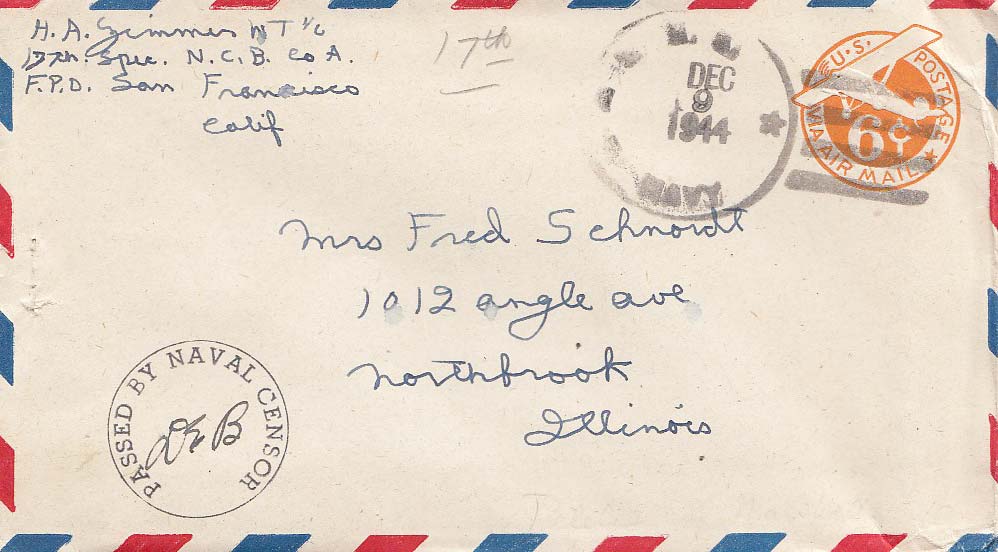 H. A. Zimmer WT 1/c
17th. Spec. N.C.B. Co A.
F.P.O. San Francisco
Calif
17th
DEC
9
1944
NAVY
U.S. POSTAGE
6¢
VIA AIR MAIL
Mrs Fred Schnordt
1012 angle ave
Northbrook
Illinois
PASSED BY NAVAL CENSOR
DEB